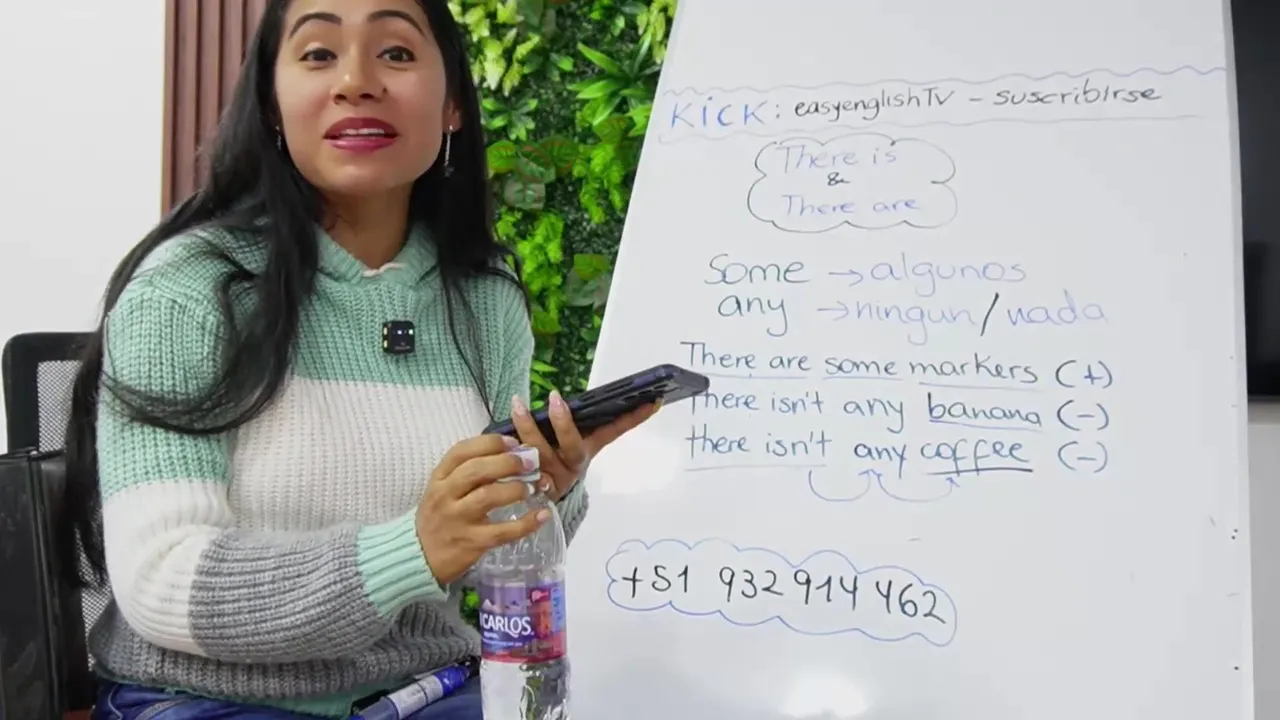 KICK: easyenglishTV - suscribirse
There is
&
There are
Some → algunos
any → ningun/nada
There are some markers (+)
There isn't any banana (-)
there isn't any coffee (-)
+51 932 914 462
CARLOS